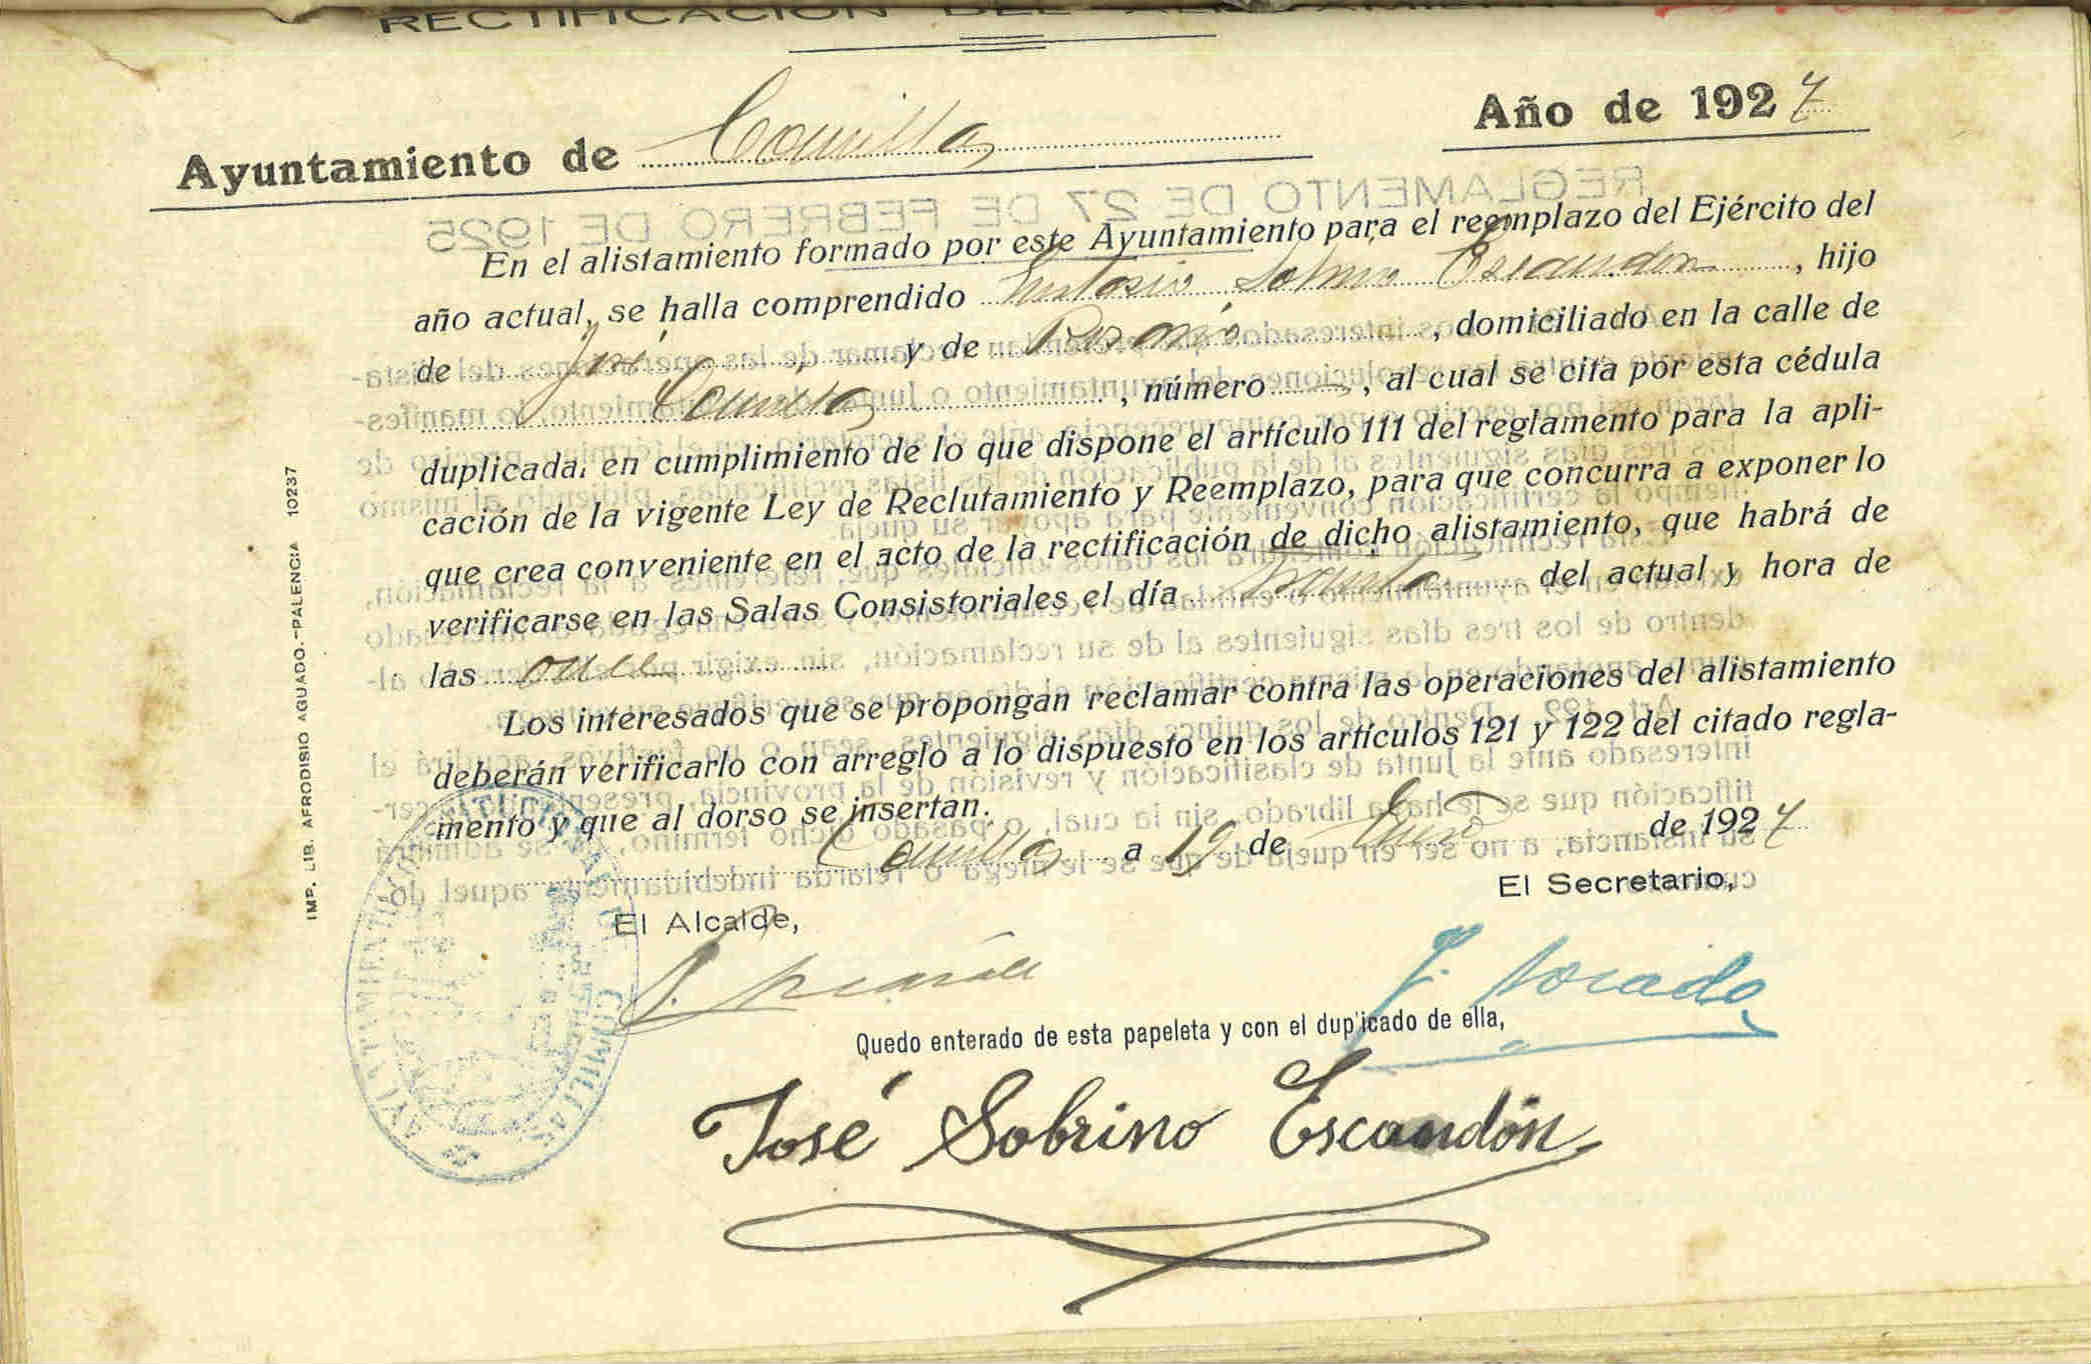 RECTIFICACIÓN DEL ALISTAMIENTO
Ayuntamiento de Comillas
Año de 1927
REGLAMENTO DE 27 DE FEBRERO DE 1925
En el alistamiento formado por este Ayuntamiento para el reemplazo del Ejército del
año actual, se halla comprendido Sobrino Escandón, hijo
de José y de Rosario, domiciliado en la calle de
Comillas, número —, al cual se cita por esta cédula
duplicada, en cumplimiento de lo que dispone el artículo 111 del reglamento para la apli-
cación de la vigente Ley de Reclutamiento y Reemplazo, para que concurra a exponer lo
que crea conveniente en el acto de la rectificación de dicho alistamiento, que habrá de
verificarse en las Salas Consistoriales el día treinta del actual y hora de
las once
Los interesados que se propongan reclamar contra las operaciones del alistamiento
deberán verificarlo con arreglo a lo dispuesto en los artículos 121 y 122 del citado regla-
mento y que al dorso se insertan.
Comillas a 19 de Enero de 1927
El Secretario,
El Alcalde,
Quedo enterado de esta papeleta y con el duplicado de ella,
José Sobrino Escandón
IMP. LIB. AFRODISIO AGUADO.-PALENCIA 10237
AYUNTAMIENTO CONSTITUCIONAL DE COMILLAS